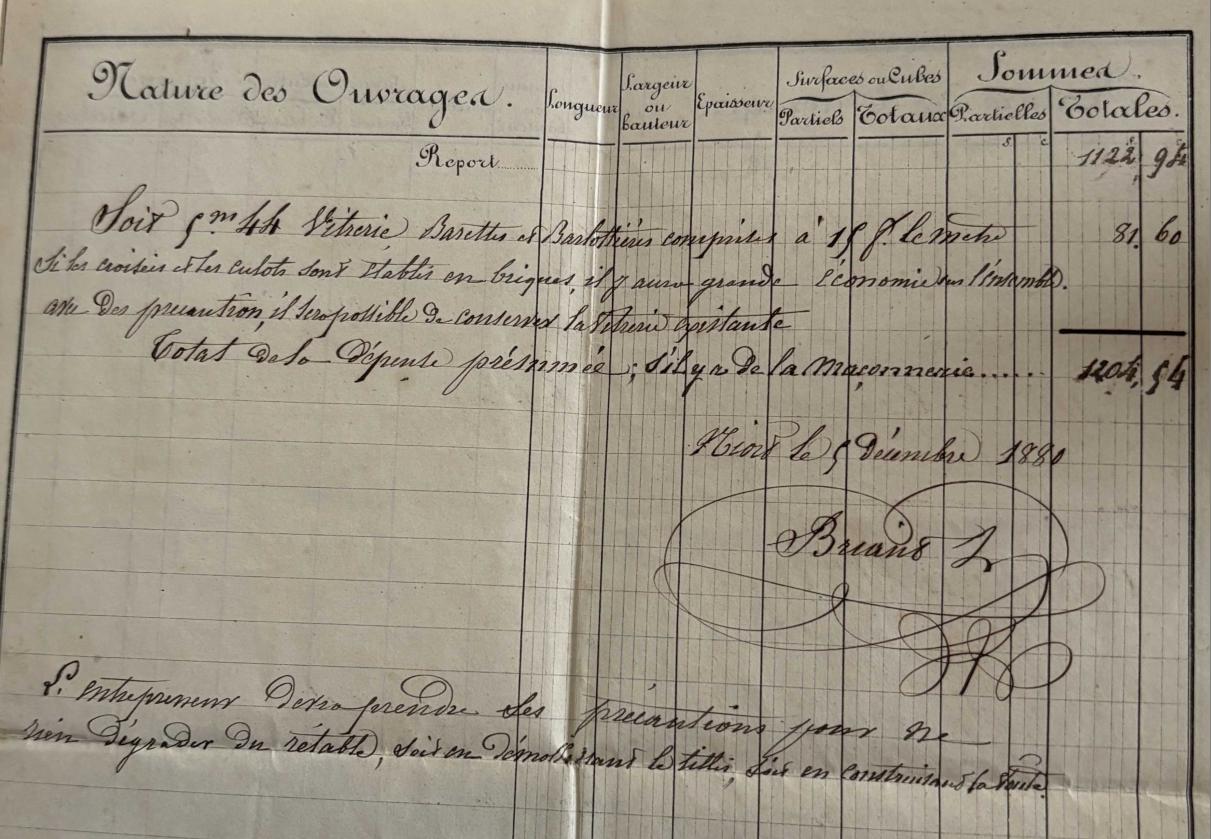 Nature des Ouvrages.
Longueur
Largeur
ou
hauteur
Epaisseur
Surfaces ou Cubes
Partiels
Totaux
Sommes.
Partielles
Totales.
f. c.
Report........ 1122, 94
Soit 5m 44 Vitrerie, Barettes et Barlottières comprises à 15 f. le mètre 81, 60
Si les croisées et les culots sont établis en briques, il y aura grande économie sur l'ensemble.
avec des precaution, il sera possible de conserver la vitrerie existante
Total de la dépense présumée ; s'il y a de la maçonnerie...... 1204, 54
Niort le 5 décembre 1880
Briand
L'entrepreneur devra prendre ses précautions pour ne
rien dégrader du rétable, soit en démolissant le tillis, soit en construisant la voute.